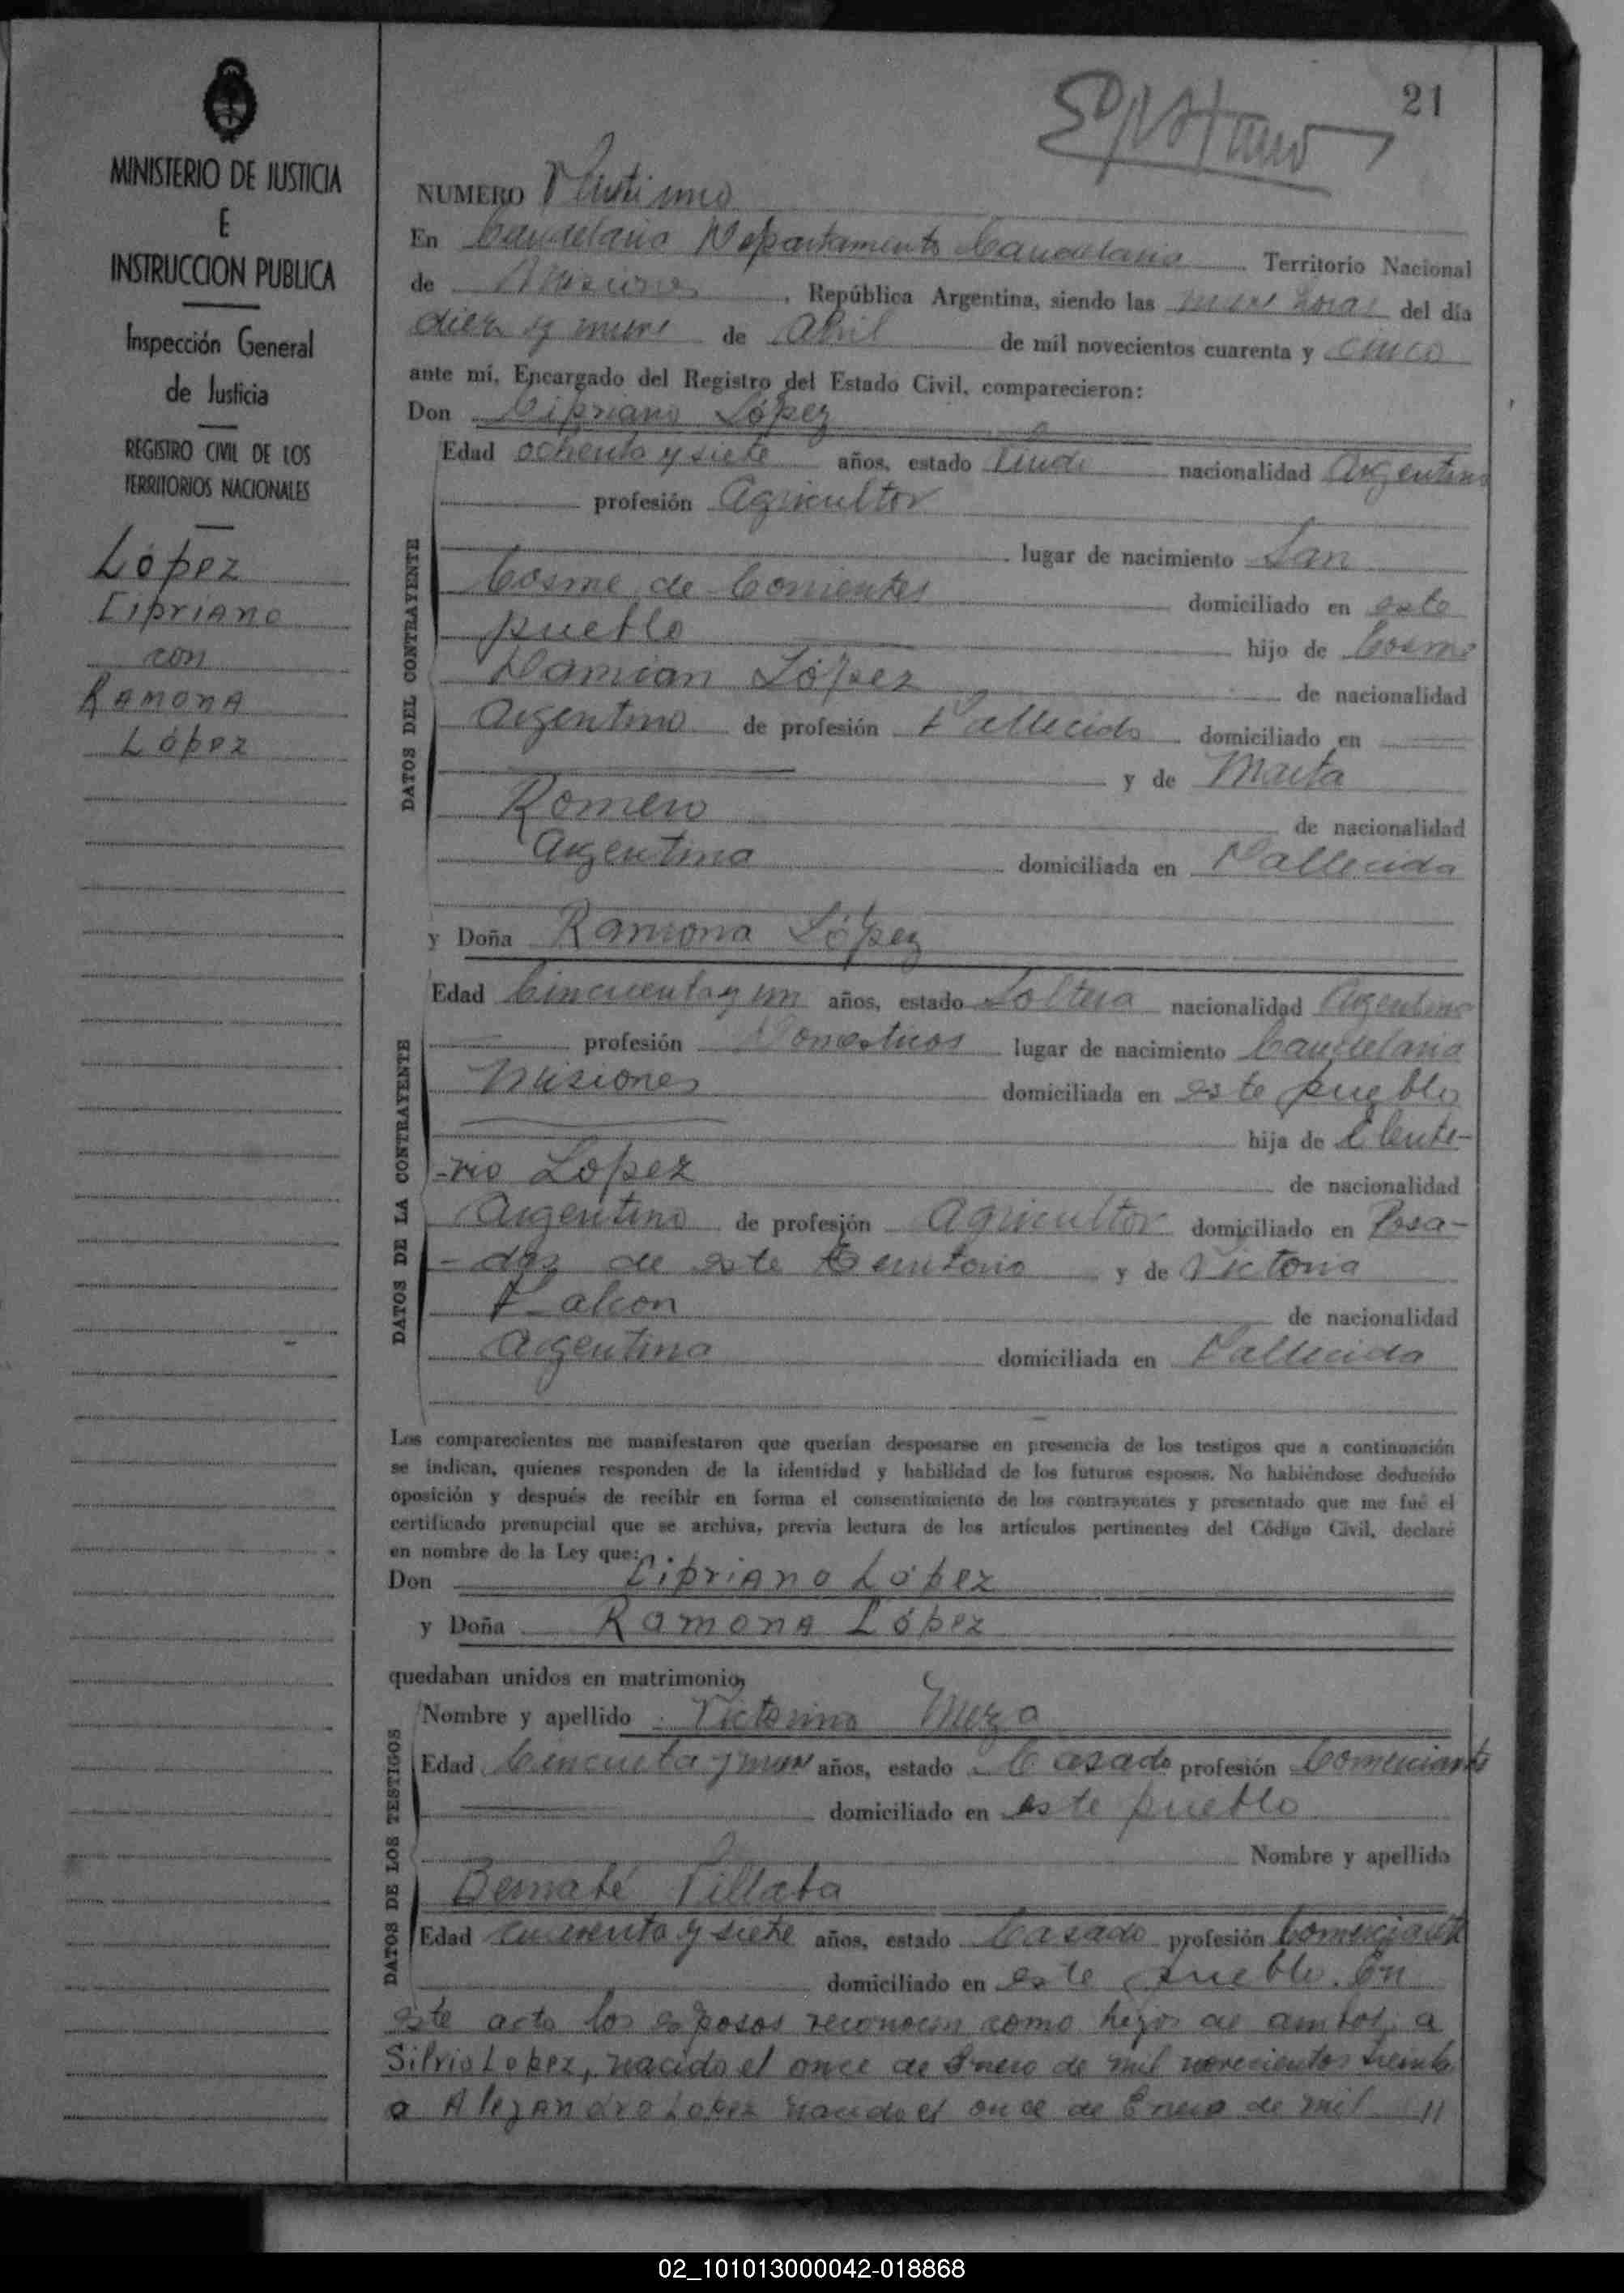 21
MINISTERIO DE JUSTICIA
E
INSTRUCCION PUBLICA
Inspección General
de Justicia
REGISTRO CIVIL DE LOS
TERRITORIOS NACIONALES
López
Cipriano
con
Ramona
López
NUMERO Veinti uno
En Candelaria Departamento Candelaria Territorio Nacional
de Misiones, República Argentina, siendo las nueve horas del día
diez y nueve de Abril de mil novecientos cuarenta y cinco
ante mí, Encargado del Registro del Estado Civil, comparecieron:
Don Cipriano López
Edad ochenta y siete años, estado Viudo nacionalidad Argentino
profesión Agricultor
lugar de nacimiento San
Cosme de Corrientes domiciliado en este
pueblo hijo de Cosme
Damian López de nacionalidad
Argentino de profesión Fallecido domiciliado en
y de Marta
Romero de nacionalidad
Argentina domiciliada en Fallecida
y Doña Ramona López
Edad Cincuenta y un años, estado Soltera nacionalidad Argentina
profesión Domesticos lugar de nacimiento Candelaria
Misiones domiciliada en este pueblo
hija de Eleute-
-rio Lopez de nacionalidad
Argentino de profesión Agricultor domiciliado en Posa-
-das de este Territorio y de Victoria
Falcon de nacionalidad
Argentina domiciliada en Fallecida
DATOS DEL CONTRAYENTE
DATOS DE LA CONTRAYENTE
Los comparecientes me manifestaron que querían desposarse en presencia de los testigos que a continuación
se indican, quienes responden de la identidad y habilidad de los futuros esposos. No habiéndose deducido
oposición y después de recibir en forma el consentimiento de los contrayentes y presentado que me fué el
certificado prenupcial que se archiva, previa lectura de los artículos pertinentes del Código Civil, declaré
en nombre de la Ley que:
Don Cipriano López
y Doña Ramona López
quedaban unidos en matrimonio,
Nombre y apellido Victorino Meza
Edad Cincueta y nueve años, estado Casado profesión Comerciante
domiciliado en este pueblo
Nombre y apellido
Bernabé Villalba
Edad cuarenta y siete años, estado Casado profesión Comerciante
domiciliado en este pueblo. En
DATOS DE LOS TESTIGOS
este acto los esposos reconocen como hijos de ambos: a
Silvio Lopez, nacido el once de Enero de mil novecientos treinta
a Alejandro Lopez nacido el once de Enero de mil //
02_101013000042-018868